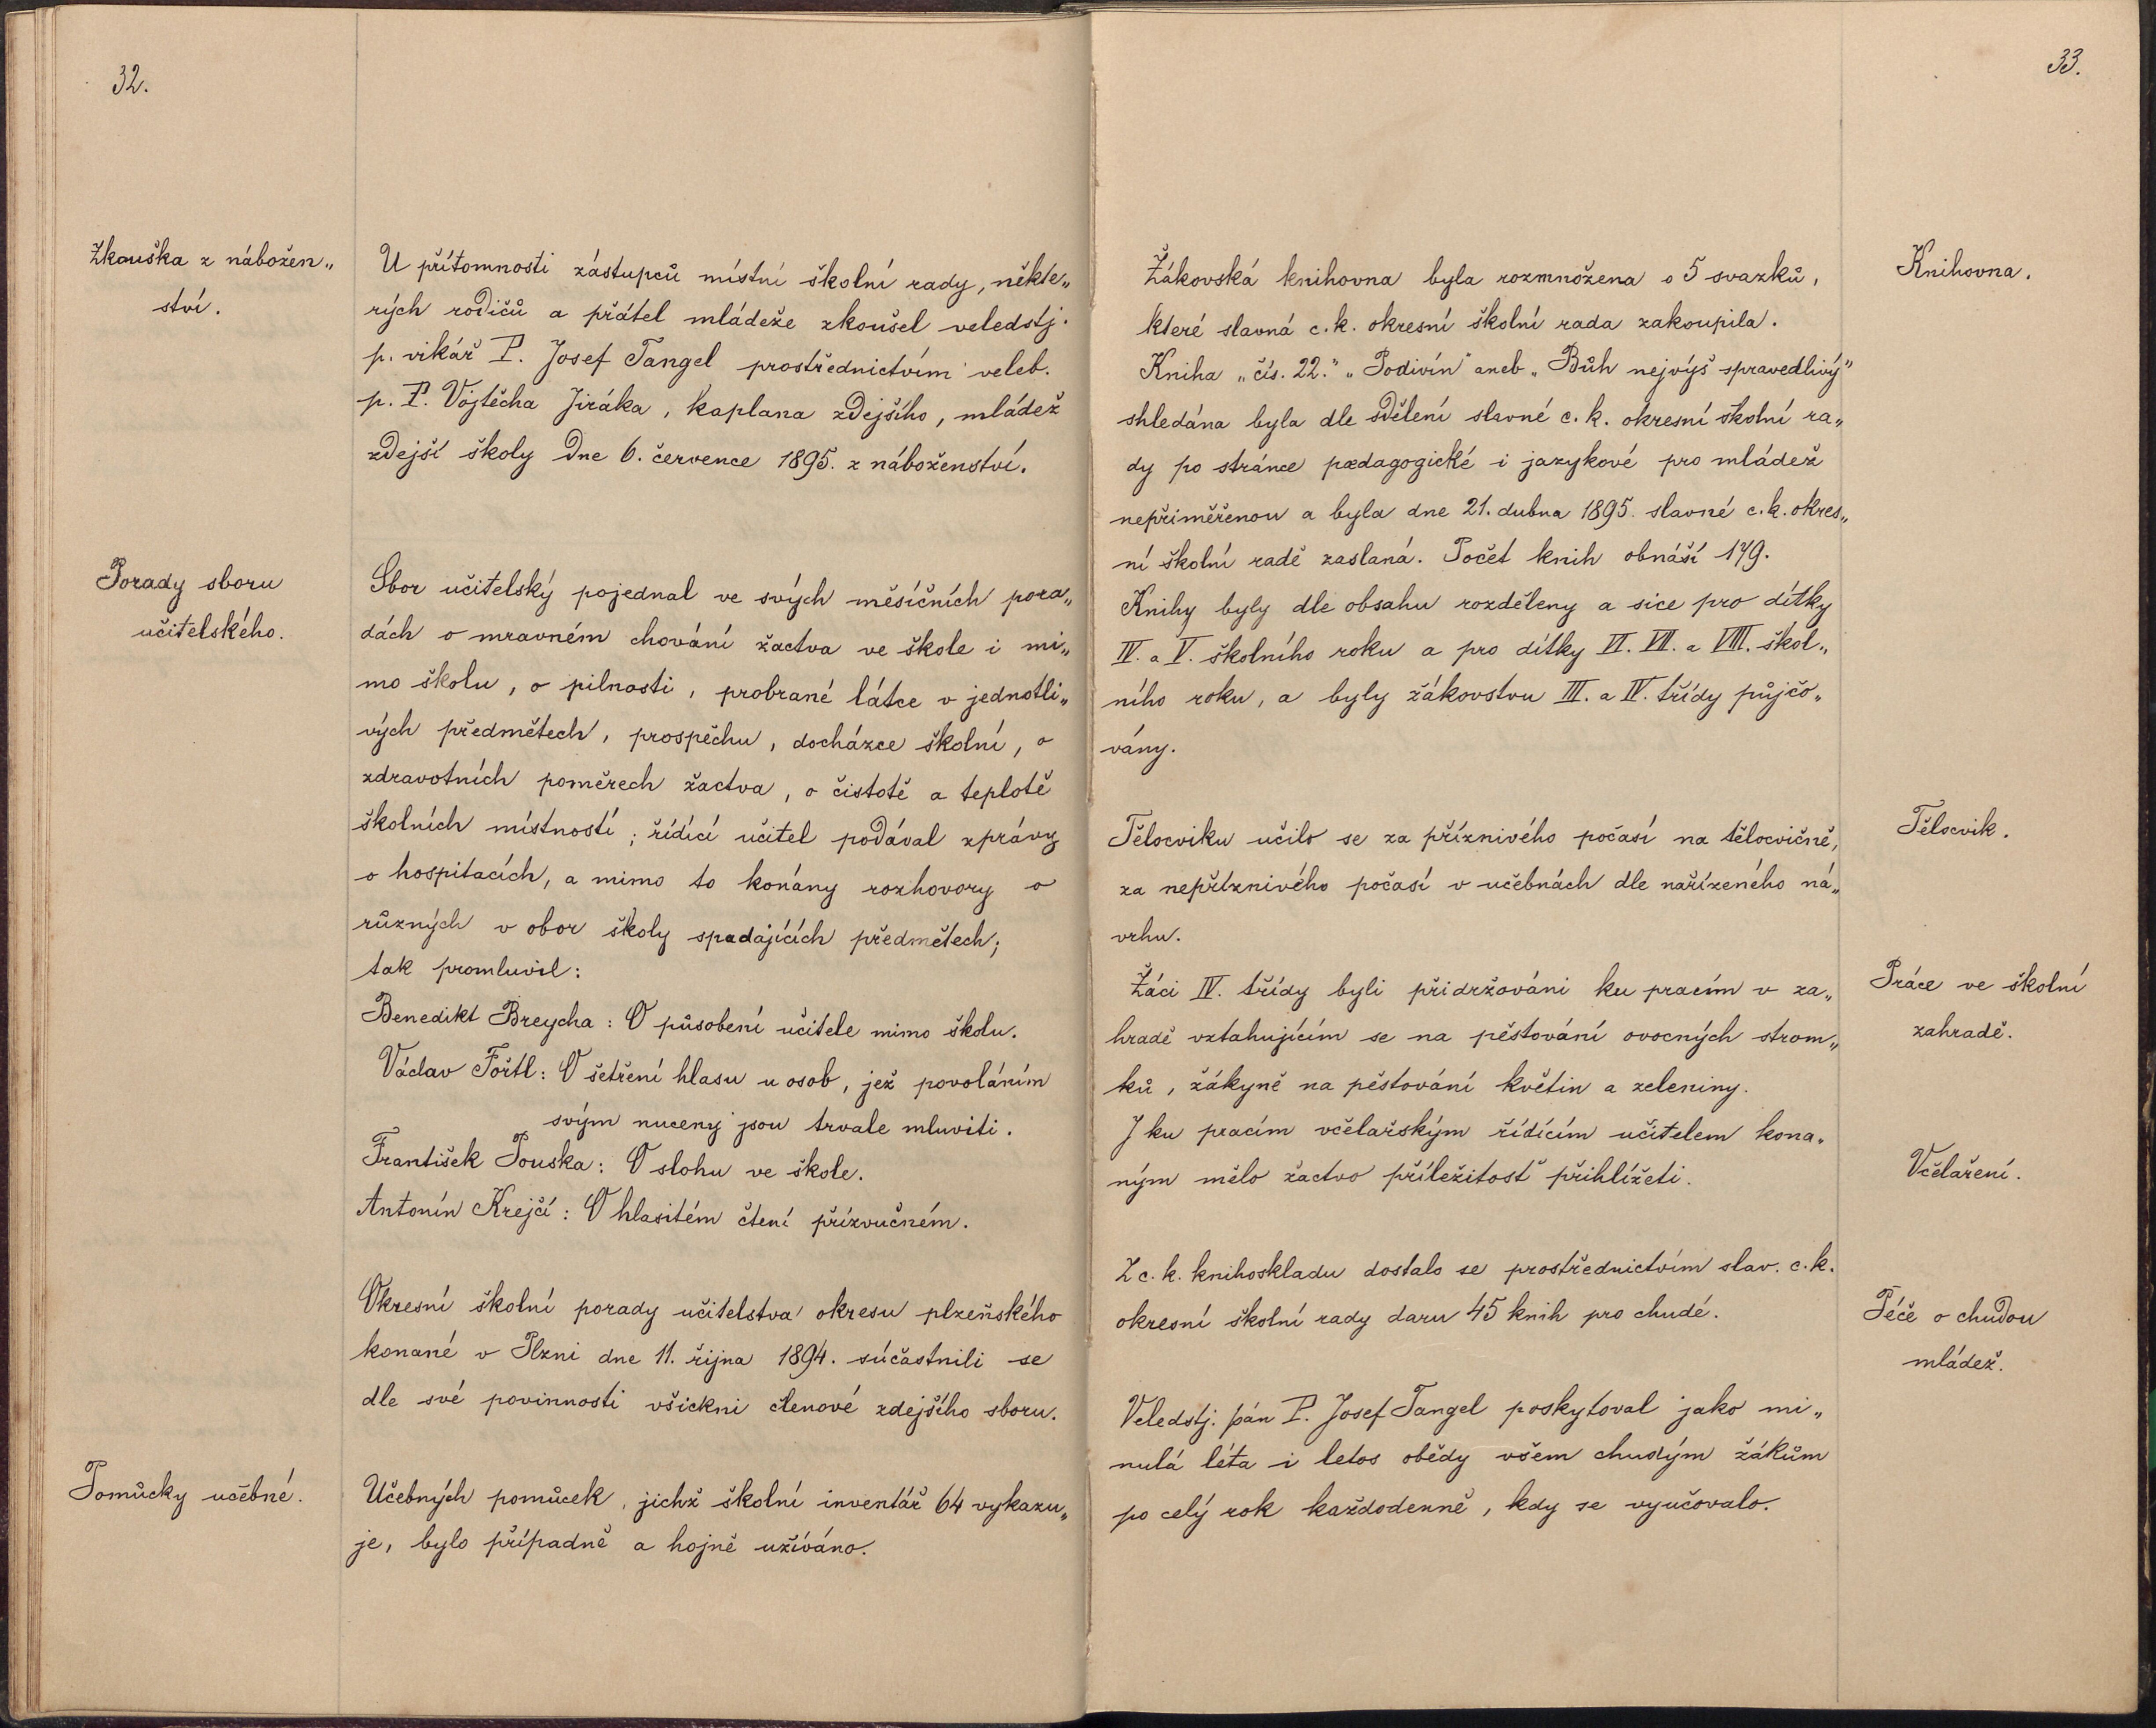 32.
Zkouška z nábožen„
ství.
U přítomnosti zástupců místní školní rady, někte„
rých rodičů a přátel mládeže zkoušel veledstj.
p. vikář P. Josef Tangel prostřednictvím veleb.
p. P. Vojtěcha Jiráka, kaplana zdejšího, mládež
zdejší školy dne 6. července 1895. z náboženství.
Porady sboru
učitelského.
Sbor učitelský pojednal ve svých měsíčních pora„
dách o mravném chování žactva ve škole i mi„
mo školu, o pilnosti, probrané látce v jednotli„
vých předmětech, prospěchu, docházce školní, o
zdravotních poměrech žactva, o čistotě a teplotě
školních místností; řídící učitel podával zprávy
o hospitacích, a mimo to konány rozhovory o
různých v obor školy spadajících předmětech;
tak promluvil:
Benedikt Breycha: O působení učitele mimo školu.
Václav Förtl: O šetření hlasu u osob, jež povoláním
svým nuceny jsou trvale mluviti.
František Pouska: O slohu ve škole.
Antonín Krejčí: O hlasitém čtení přízvučném.
Okresní školní porady učitelstva okresu plzeňského
konané v Plzni dne 11. října 1894. súčastnili se
dle své povinnosti všickni členové zdejšího sboru.
Pomůcky učebné.
Učebných pomůcek, jichž školní inventář 64 vykazu„
je, bylo případně a hojně užíváno.
33.
Knihovna.
Žákovská knihovna byla rozmnožena o 5 svazků,
které slavná c. k. okresní školní rada zakoupila.
Kniha „čís. 22." „Podivín" aneb „Bůh nejvýš spravedlivý"
shledána byla dle sdělení slavné c. k. okresní školní ra„
dy po stránce pædagogické i jazykové pro mládež
nepřiměřenou a byla dne 21. dubna 1895. slavné c. k. okres„
ní školní radě zaslaná. Počet knih obnáší 179.
Knihy byly dle obsahu rozděleny a sice pro dítky
IV. a V. školního roku a pro dítky VI. VII. a VIII. škol„
ního roku, a byly žákovstvu III. a IV. třídy půjčo„
vány.
Tělocvik.
Tělocviku učilo se za příznivého počasí na tělocvičně,
za nepříznivého počasí v učebnách dle nařízeného ná„
vrhu.
Práce ve školní
zahradě.
Žáci IV. třídy byli přidržováni ku pracím v za„
hradě vztahujícím se na pěstování ovocných strom„
ků, žákyně na pěstování květin a zeleniny.
Včelaření.
I ku pracím včelařským řídícím učitelem kona„
ným mělo žactvo příležitosť přihlížeti.
Péče o chudou
mládež.
Z c. k. knihoskladu dostalo se prostřednictvím slav. c. k.
okresní školní rady daru 45 knih pro chudé.
Veledstj. pán P. Josef Tangel poskytoval jako mi„
nulá léta i letos obědy všem chudým žákům
po celý rok každodenně, kdy se vyučovalo.